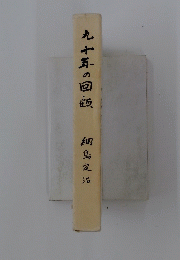 九十年の回顧
細島定治